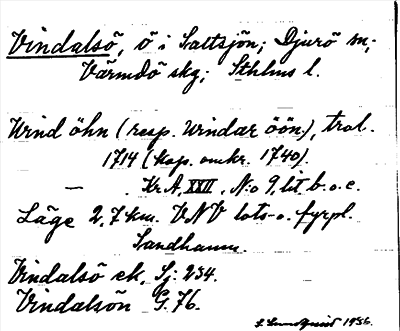 Vindalsö, ö i Saltsjön; Djurö sn;
Värmdö skg; Sthlms l.
Wind öhn (resp. Windar öön), trol.
1714 (kop. omkr. 1740).
— Kr A, XXII, N:o 9, lit. b. o. c.
Läge 2,7 km. VNV lots- o. fyrpl.
Sandhamn.
Vindalsö ek, Sj: 234.
Vindalsön G. 76.
Lundquist 1936.